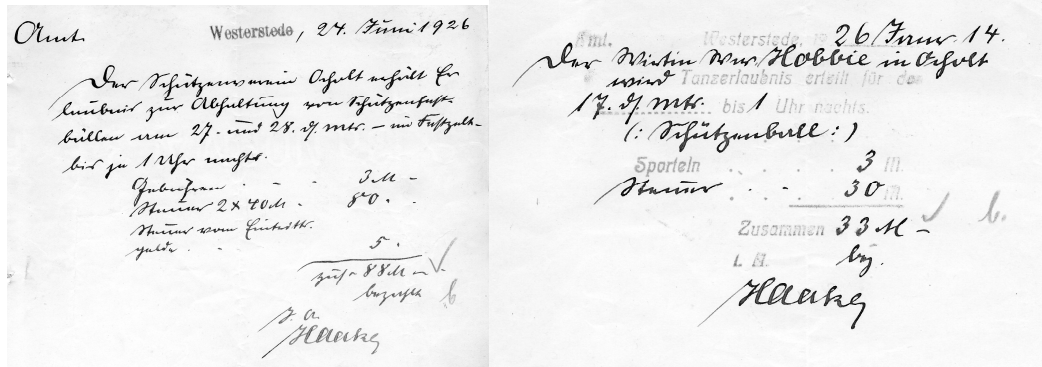 Amt.
Westerstede, 24. Juni 1926
Der Schützenverein Ocholt erhält Er
laubnis zur Abhaltung von Schützenfest-
bällen am 27. und 28. d. Mts. – im Festzelt –
bis je 1 Uhr nachts.
Gebühren . . 3 M –
Steuer 2 x 40 M – 80 .
Steuer vom Eintritts-
gelde . . 5 .
zus. 88 M –
bezahlt
J. A.
Haake
Amt. Westerstede, 19 26 Janr 14.
Der Wirtin Wwe Hobbie in Ocholt
wird Tanzerlaubnis erteilt für den
17. d. Mts. bis 1 Uhr nachts.
(: Schützenball :)
Sporteln . . . . 3 M.
Steuer . . . 30 M.
Zusammen 33 M –
bez.
I. A.
Haake